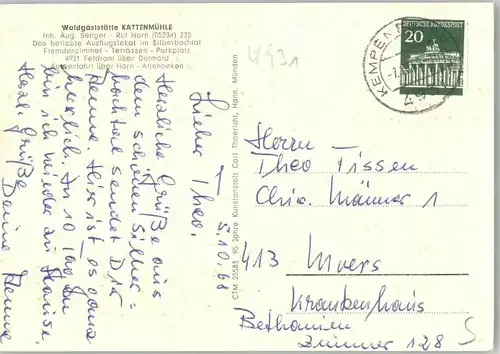 Waldgaststätte KATTENMÜHLE
Inh. Aug. Senger - Ruf Horn (05234) 220
Das beliebte Ausflugslokal im Silberbachtal
Fremdenzimmer - Terrassen - Parkplatz
4931 Feldrom über Detmold
Autoanfahrt über Horn - Altenbeken
4931
5.10.68
Lieber Theo.
Herzliche Grüße aus
dem schönen Silber=
bachtal sendet Dir
Henne. Hier ist es ganz
herrlich. In 10 Tagen
bin ich wieder zu Hause.
Herzl. Grüße
Deine Henne
CTM 25585 95 Jahre Kunstanstalt Carl Thoericht, Hann. Münden
DEUTSCHE BUNDESPOST
20
KEMPEN
Herrn
Theo Tissen
Chir. Männer 1
413 Moers
Krankenhaus
Bethanien
Zimmer 128